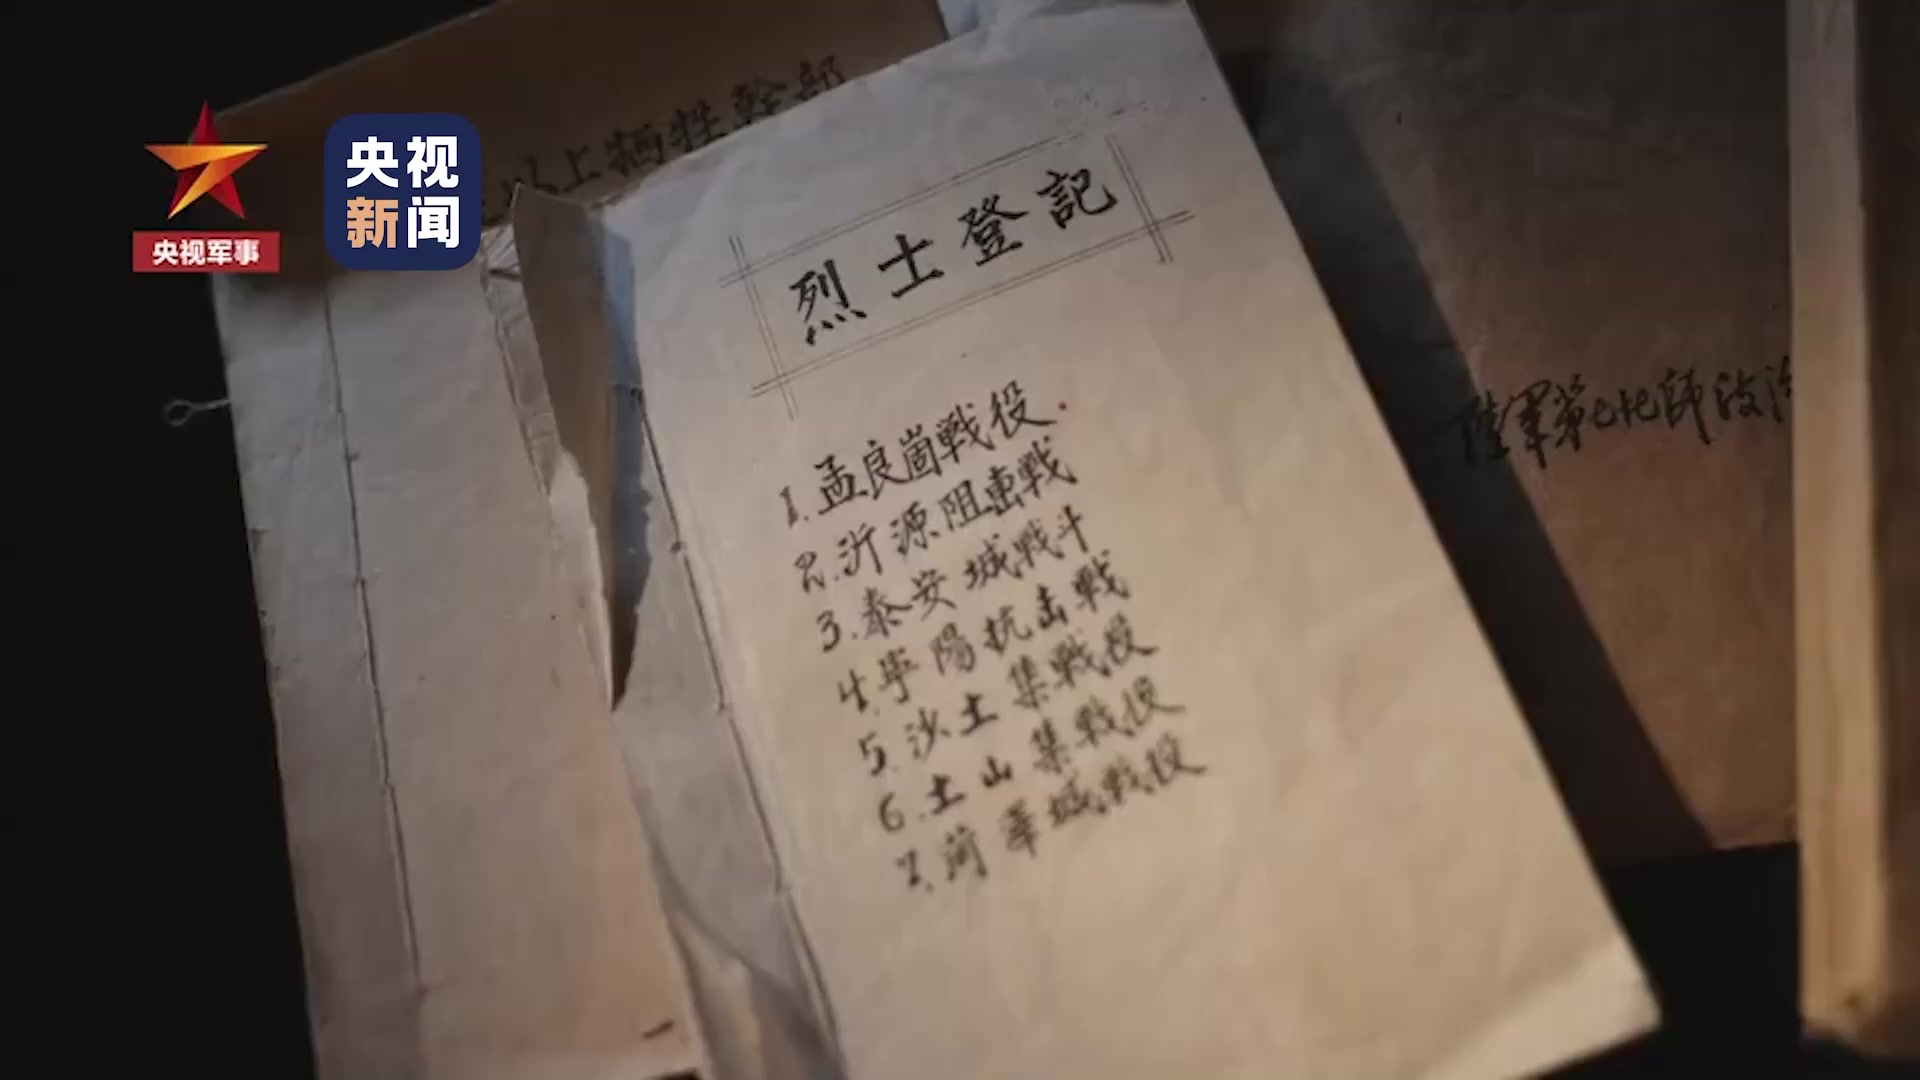 央视军事
央视
新闻
以上牺牲幹部
烈士登記
1.孟良崮戰役.
2.沂源阻击戰
3.泰安城戰斗
4.宁陽抗击戰
5.沙土集戰役
6.土山集戰役
7.菏泽城戰役
陸軍第七十七師政治